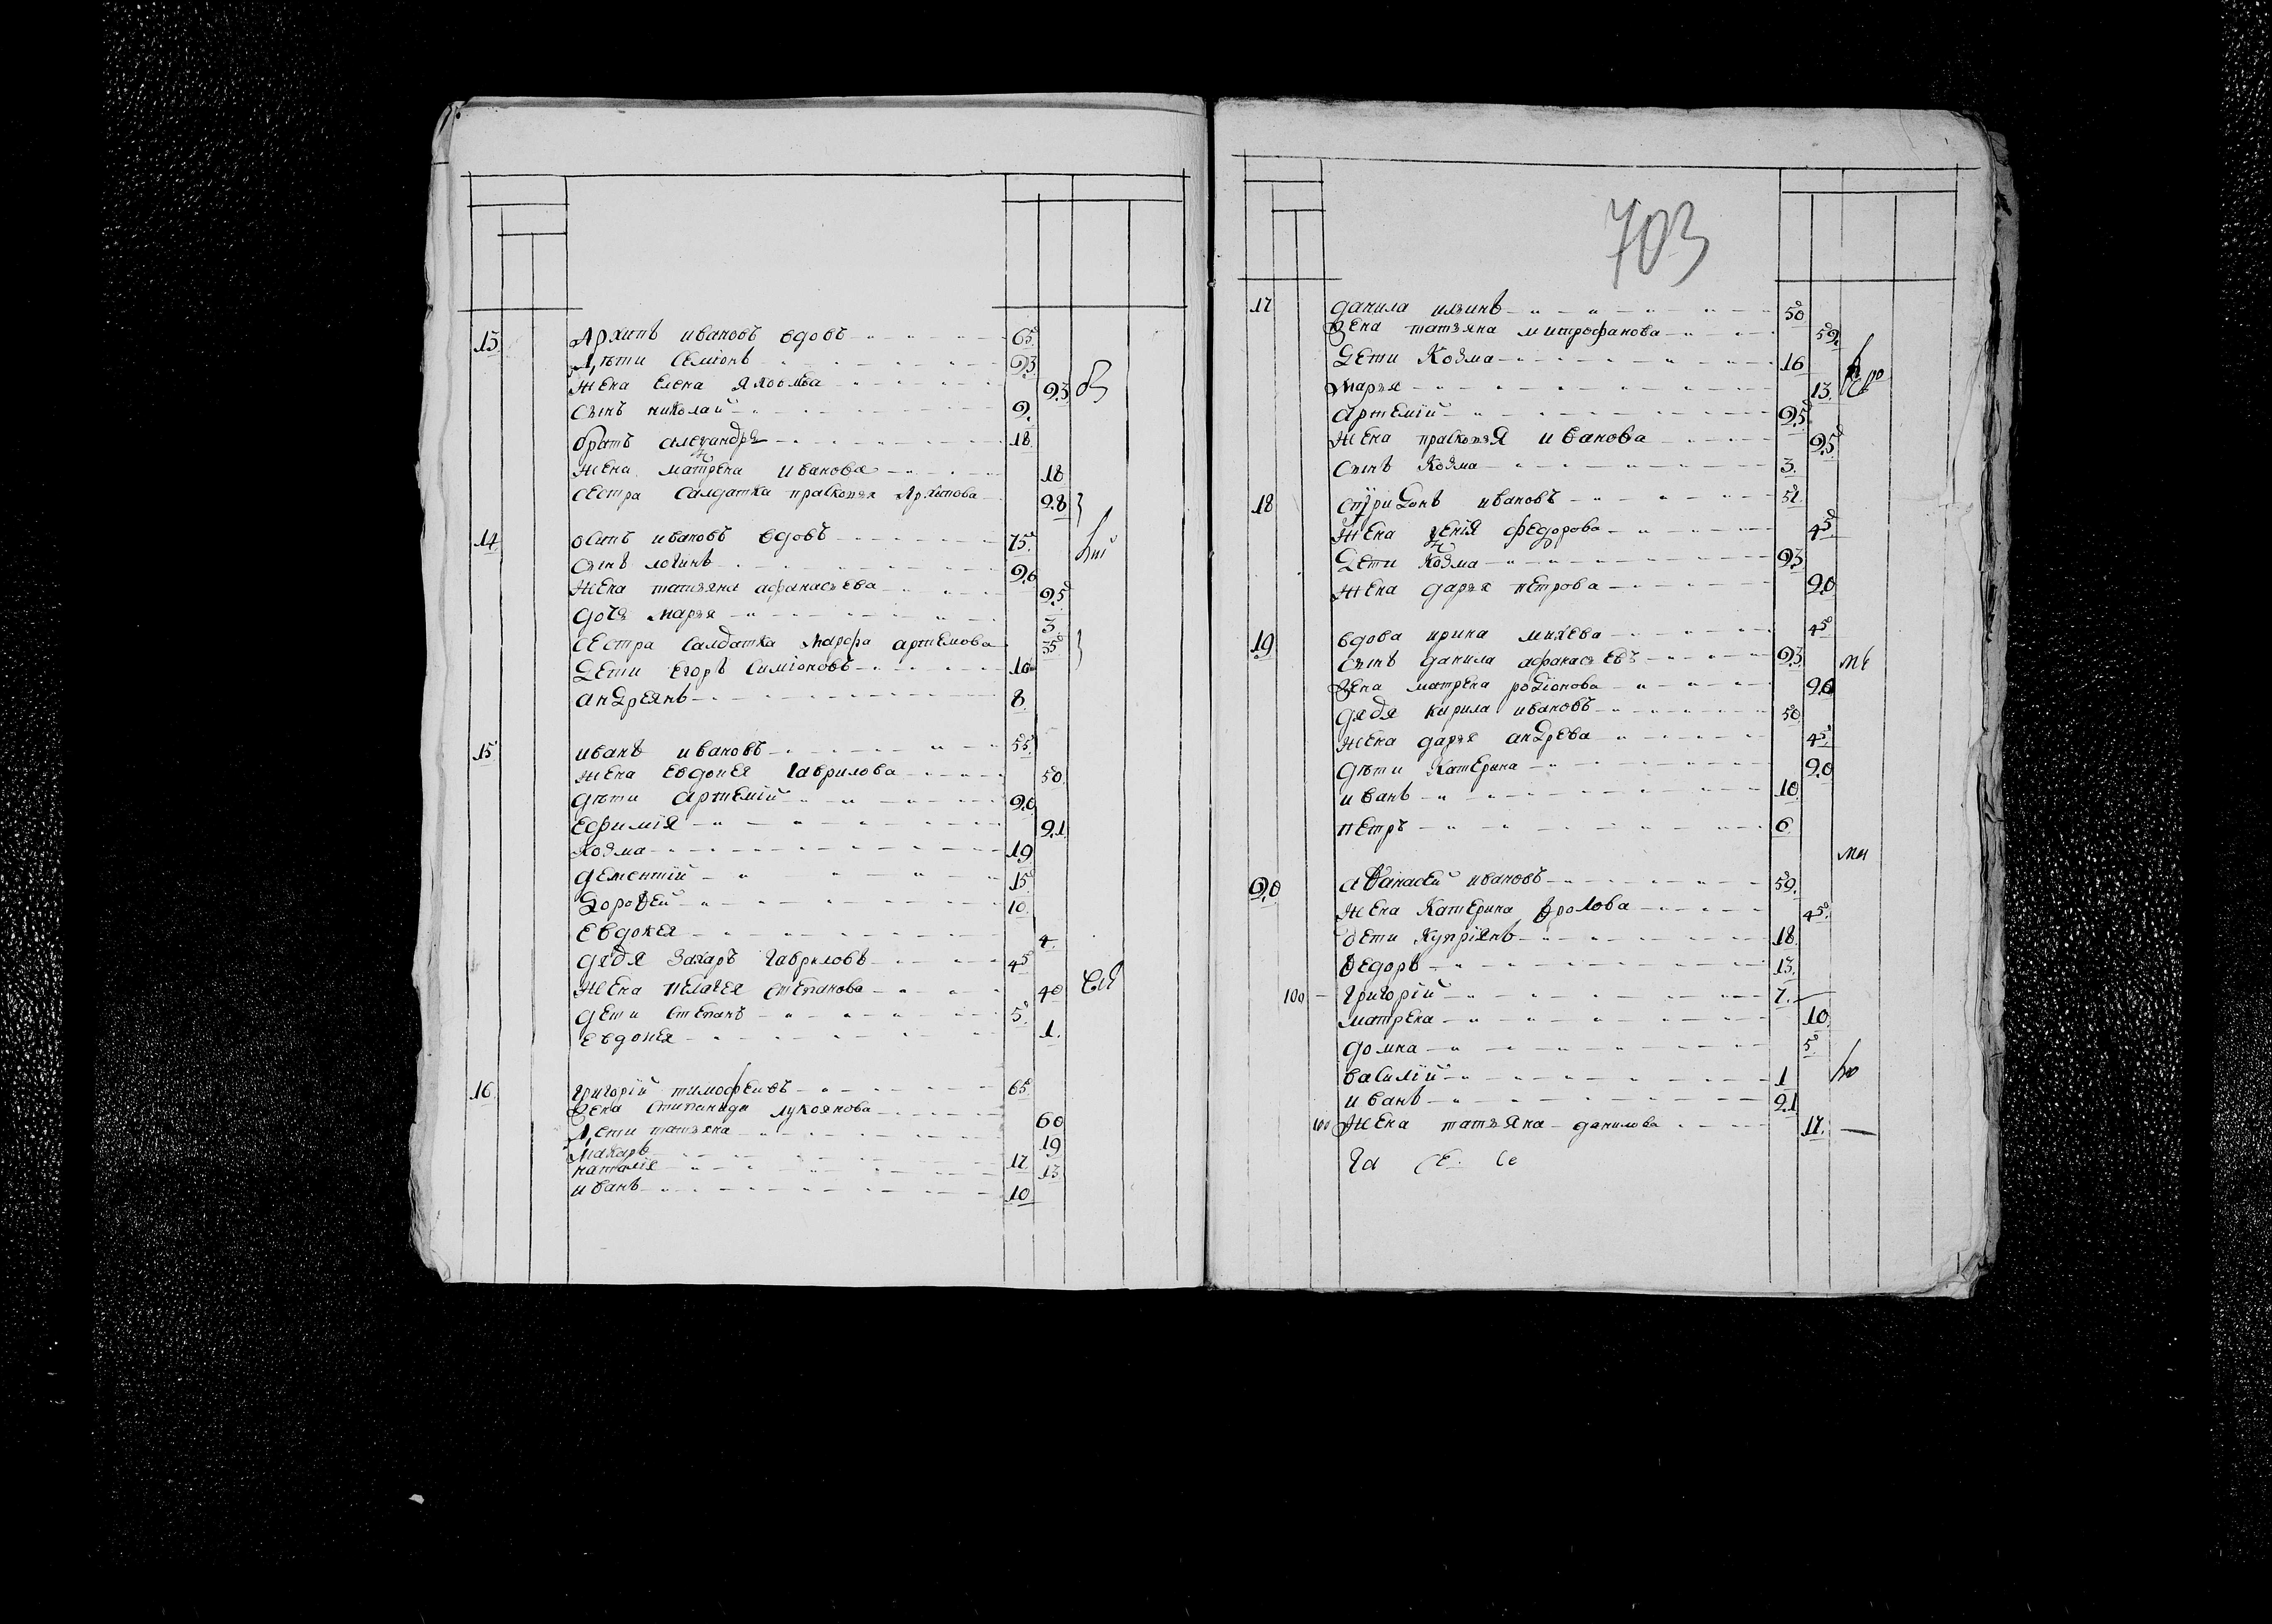 13. Архипъ ивановъ вдовъ 65.
Дѣти Семіонъ 23
жена Елена Яковлева 23
сынъ николай 2.
братъ алеѯандръ 18.
жена матрена иванова 18
сестра салдатка прасковья Архипова 28
14 осипъ ивановъ вдовъ 75.
сынъ логинъ 26
жена татьяна афанасьева 25
дочь марья 3
сестра салдатка марфа артемова 35
Дети Егоръ Симіоновъ 10
андреянъ 8.
15 иванъ ивановъ 55
жена Евдокея гаврилова 50.
дѣти артемій 20
Ефимія 21
Козма 19
дементій 15
Дороѳей 10.
Евдокея 4.
дядя Захаръ гавриловъ 45
жена пелагея степанова 40
дети степанъ 5.
евдокея 1.
16. григорій тимофеивъ 65
жена степанида лукоянова 60
Дети татьяна 19
Макаръ 17.
наталія 13
иванъ 10
703
17 данила ильинъ 50
жена татьяна митрофанова 52.
Дети Козма 16
марья 13.
артемій 25
жена прасковья иванова 25
сынъ Козма 3.
18 спиридонъ ивановъ 51
жена ѯенія федорова 45.
Дети Козма 23
жена дарья петрова 20
19 вдова ирина михева 45
сынъ данила афанасьевъ 23
жена матрена родіонова 20
дядя кирила ивановъ 50
жена дарья андрева 45.
дѣти Катерина 20
иванъ 10.
петръ 6
20 аѳанасей ивановъ 52.
жена Катерина ѳролова 45.
дети Купріянъ 18.
ѳедоръ 13.
100 григорій 7.
матрена 10.
домна 5.
василій 1
иванъ 21
100 жена татьяна данилова 17.